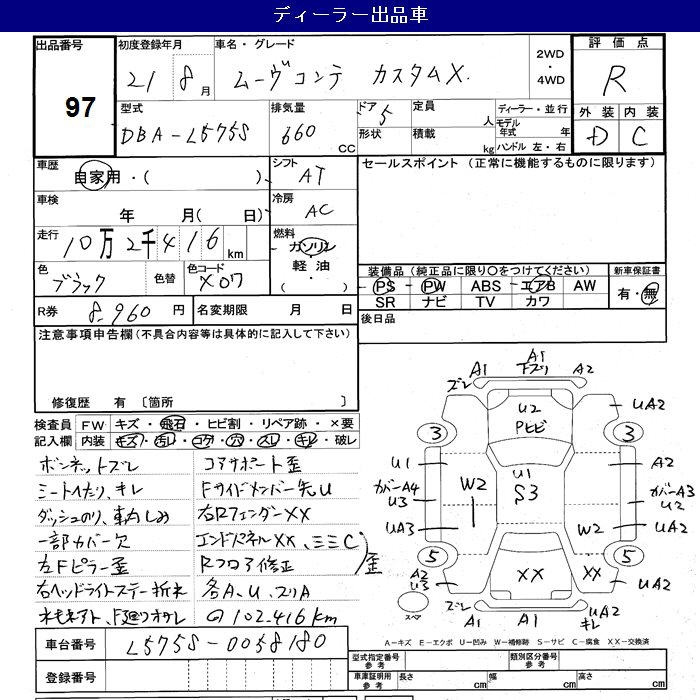 ディーラー出品車
出品番号 97
初度登録年月 21 8 月
車名・グレード ムーヴコンテ カスタムX.
2WD ・ 4WD
評価点 R
型式 DBA-L575S
排気量 660 CC
ドア 5 形状
定員 人 積載 kg
ディーラー・並行 モデル年式 年 ハンドル 左・右
外装 内装
D C
車歴 自家用・( )
シフト AT
セールスポイント (正常に機能するものに限ります)
車検 年 月( 日)
冷房 AC
走行 10万2千416 km
燃料 ガソリン 軽油・( )
色 ブラック 色替 色コード X07
装備品 (純正品に限り〇をつけてください) 新車保証書
PS PW ABS エアB AW 有・無
SR ナビ TV カワ
R券 8,960 円 名変期限 月 日
後日品
注意事項申告欄(不具合内容等は具体的に記入して下さい)
修復歴 有 〔箇所 〕
検査員記入欄 FW キズ・飛石・ヒビ割・リペア跡・×要
内装 キズ・汚レ・コゲ・穴・スレ・キレ・破レ
ボンネットズレ コアサポート歪
シートヘタリ、キレ Fサイドメンバー先U
ダッシュのり、車内しみ 右RフェンダーXX
一部カバー欠 エンドパネルXX、ミミC
左Fピラー歪 Rフロア修正 歪
右ヘッドライトステー折れ 各A、U、フリA
ネモキアト、F廻りオサレ @102,416km
車台番号 L575S-0058180
登録番号
A1 A1 下ズリ A2
ズレ
U2 Pヒビ
UA2
3 3
U1 U1 S3 A2
カバーA4 U3 W2 カバーA3 U2
UA3 W2 UA2
5 5
A2 U3 XX XX UA2
スペア ズレ A1 A1 UA2 キレ
A-キズ E-エクボ U-凹み W-補修跡 S-サビ C-腐食 XX-交換済
型式指定番号 参考 類別区分番号 参考
車庫証明用 参考 長さ cm 幅 cm 高さ cm